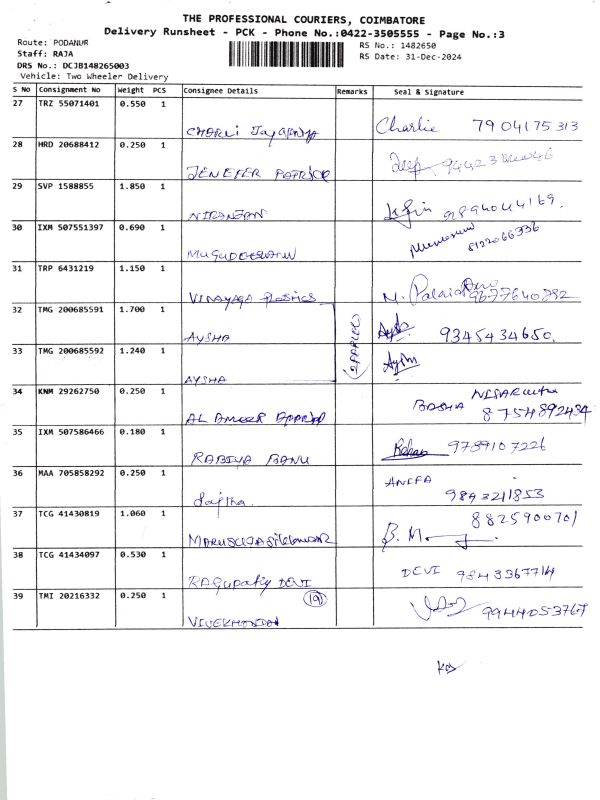 THE PROFESSIONAL COURIERS, COIMBATORE
Delivery Runsheet - PCK - Phone No.:0422-3505555 - Page No.:3
Route: PODANUR
Staff: RAJA
DRS No.: DCJB148265003
Vehicle: Two Wheeler Delivery
RS No.: 1482650
RS Date: 31-Dec-2024
S No Consignment No Weight PCS Consignee Details Remarks Seal & Signature
27 TRZ 55071401 0.550 1
Charlie 7904175313
28 HRD 20688412 0.250 1
JENEFER
29 SVP 1588855 1.850 1
NIRANJAN
30 IXM 507551397 0.690 1
8122066336
31 TRP 6431219 1.150 1
VINAYAGA Plastics 9677640892
32 TMG 200685591 1.700 1
AYSHA 9345434650
33 TMG 200685592 1.240 1
AYSHA
34 KNM 29262750 0.250 1
AL AMEER BASHA 8754892434
35 IXM 507586466 0.180 1
RABIYA BANU 9789107226
36 MAA 705858292 0.250 1
Sajitha ANIFA 9893211853
37 TCG 41430819 1.060 1
8825900701
B. M.
38 TCG 41434097 0.530 1
RAGUPATHY DEVI DEVI 9843367714
39 TMI 20216332 0.250 1
(19)
9944053767